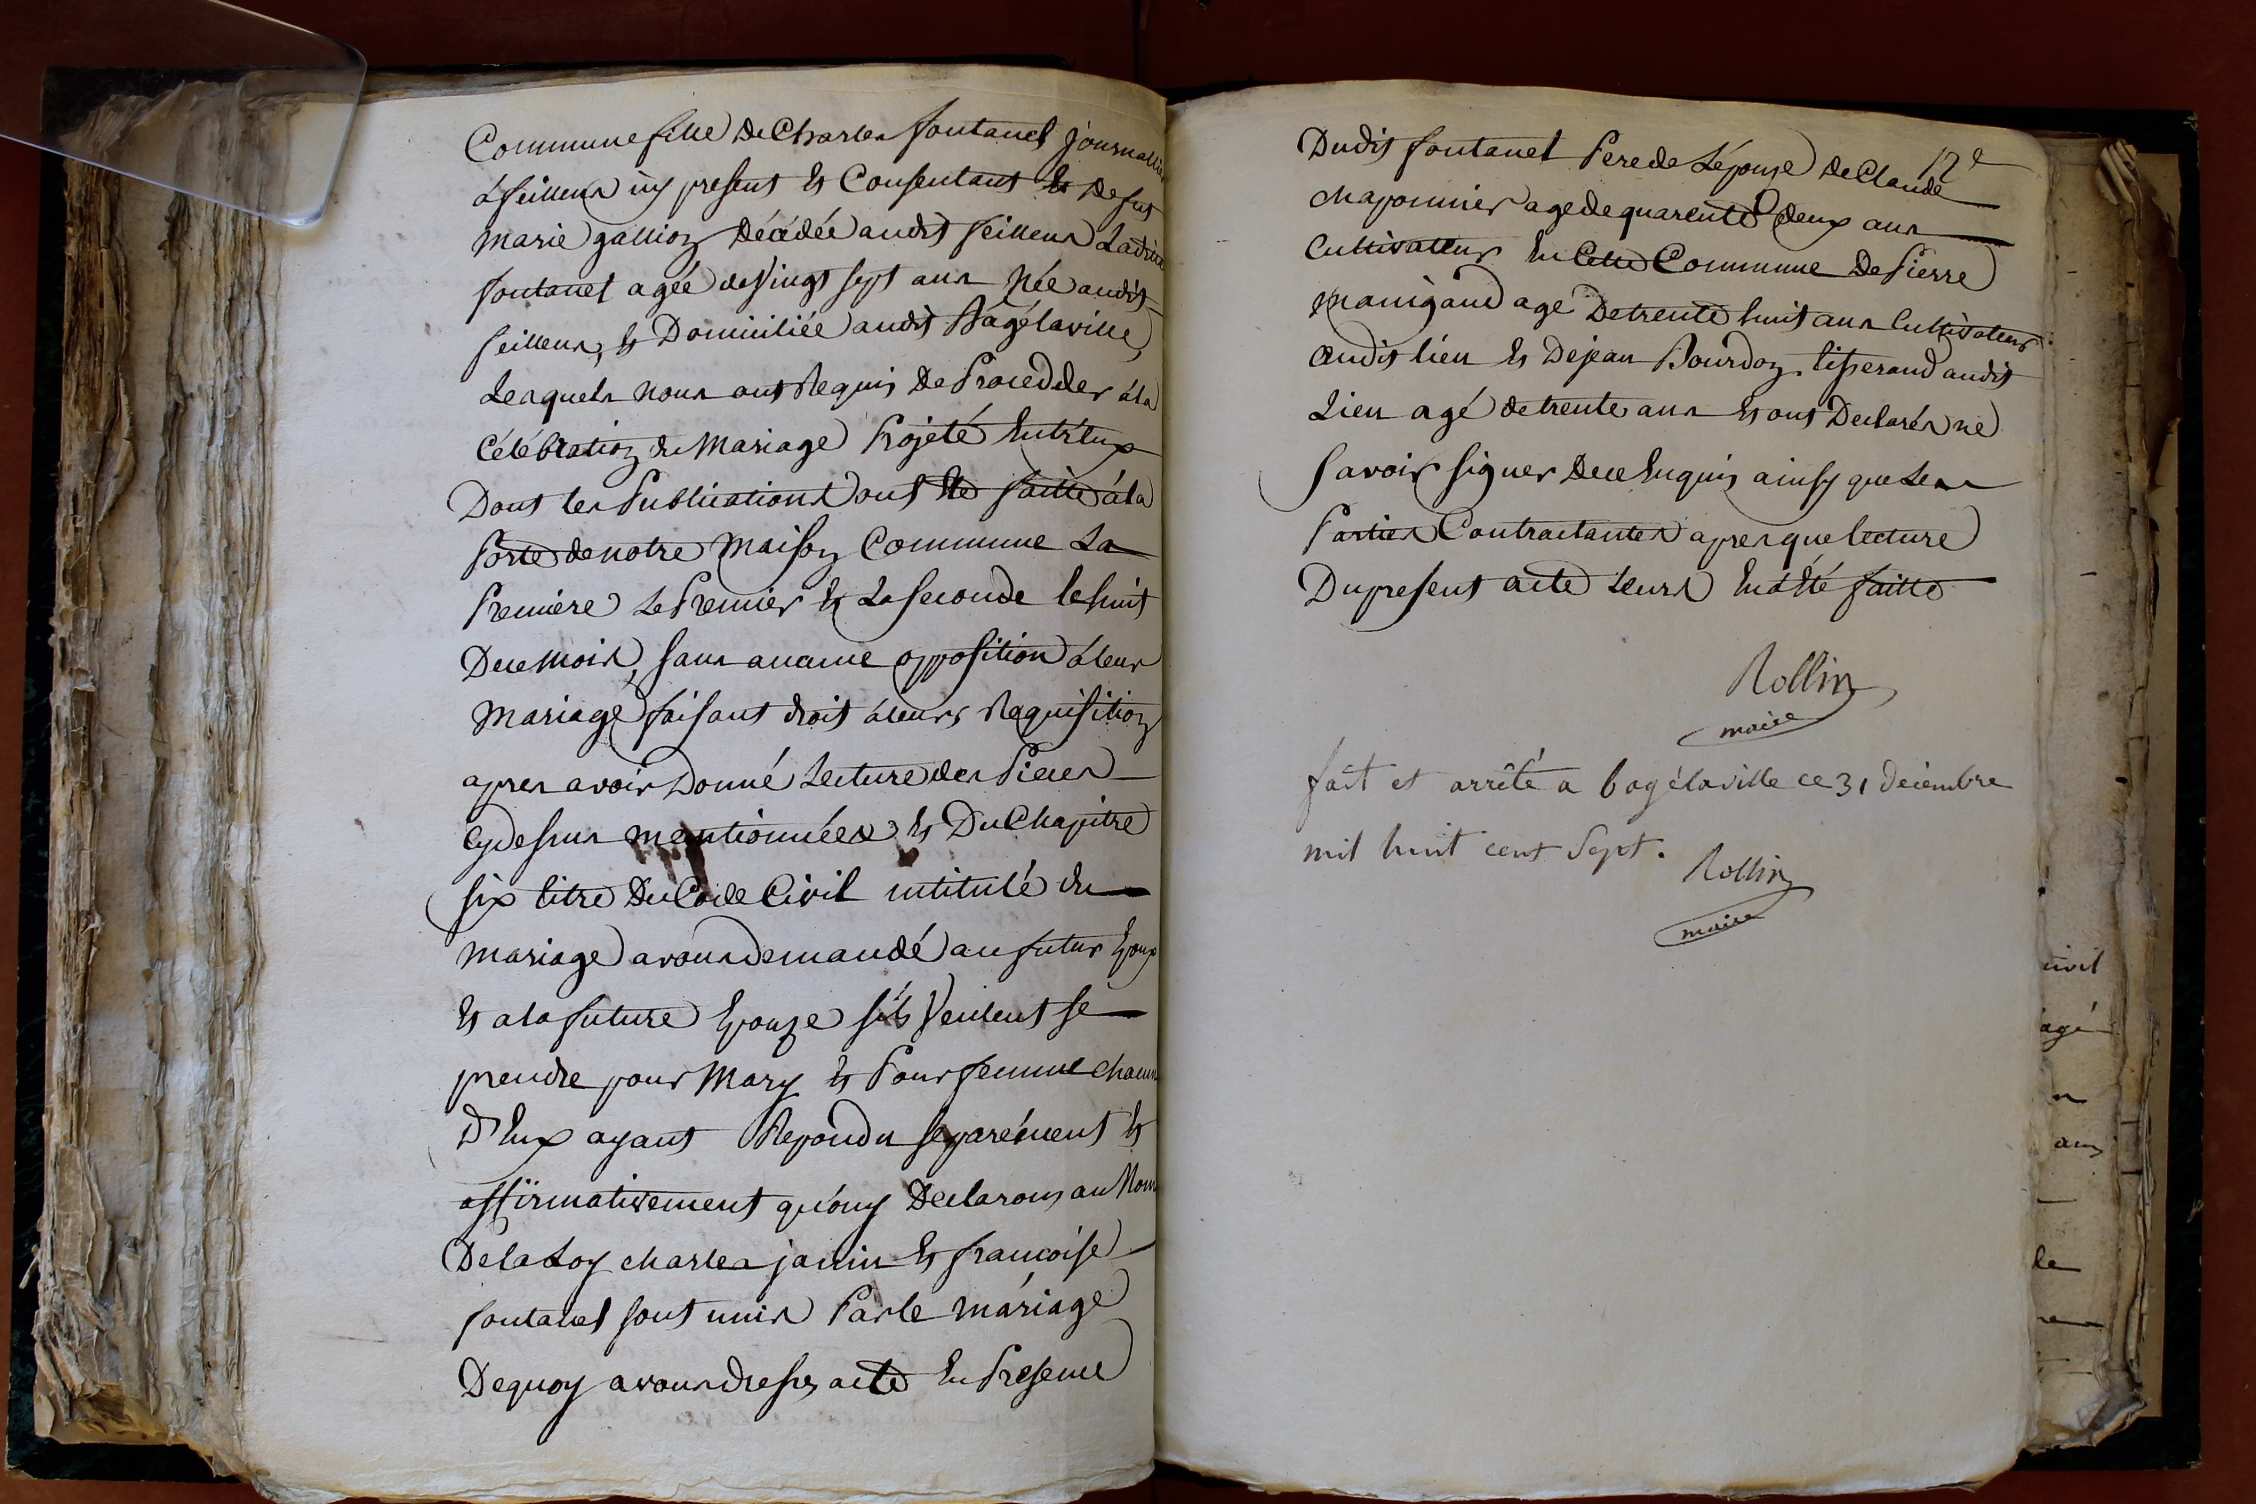 Commune fille De Charles fontanel journallier
à feillens icy present Et Consentant Et De fut
Marie gallion Décédée audit feillens Ladite
fontanel agée de Vingt sept ans Née audit
feillens, Et Domiciliée audit Bagélaville,
Lesquels nous ont Requis De Procedder à la
Célébration du Mariage Projeté Entr'Eux
Dont les Publications ont Eté faitte à la
Porte de notre Maison Commune La
Premiere Le Premier Et La seconde le huit
De ce Mois, sans aucune opposition à leur
Mariage faisant droit à leurs Requisition
apres avoir Donné Lecture des Pieces
cy dessus mentionnées Et Du Chapitre
six titre Du Code Civil intitulé du
mariage avons demandé au futur Epoux
Et a la future Epouze s'ils Veulent se
prendre pour Mary Et Pour femme chacun
D'Eux ayant Repondu séparément Et
affirmativement qu'ouy Declarons au Nom
De la Loy charles janin Et françoise
fontanel sont unis Par le Mariage
De quoy avons dressés acte En Presence
12e
Dudit fontanel Pere de L'épouze De Claude
chaponnier age de quarente deux ans
Cultivateur En Cette Commune De Pierre
manigand age De trente huit ans Cultivateur
audit lieu Et De jean Bourdon tisserand audit
Lieu agé de trente ans Et ont Declarés ne
savoir signer De ce Enquis ainsy que Les
Parties Contractantes apres que lecture
Du present acte Leurs En a Eté faitte
Rollin
maire
fait et arrêté a bagélaville ce 31 décembre
mil huit cent sept.
Rollin
maire
civil
agé
n
ans
de